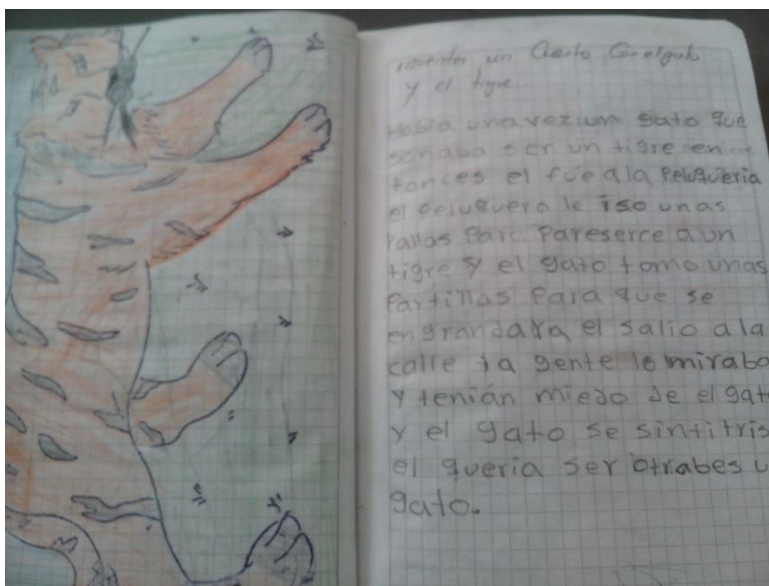 inventar un Cuento Con el gato
y el tigre.
Había una vez un gato que
soñaba ser un tigre en
tonces el fue a la Peluqueria
el Peluquero le iso unas
rallas Para Pareserce a un
tigre y el gato tomo unas
Partillas Para que se
engrandara el salio a la
calle la gente lo miraba
y tenián miedo de el gat
y el gato se sintitris
el queria ser otrabes u
gato.